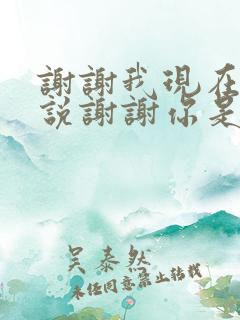 謝謝我現在
說謝謝你是
吴泰然
未经同意禁止转载